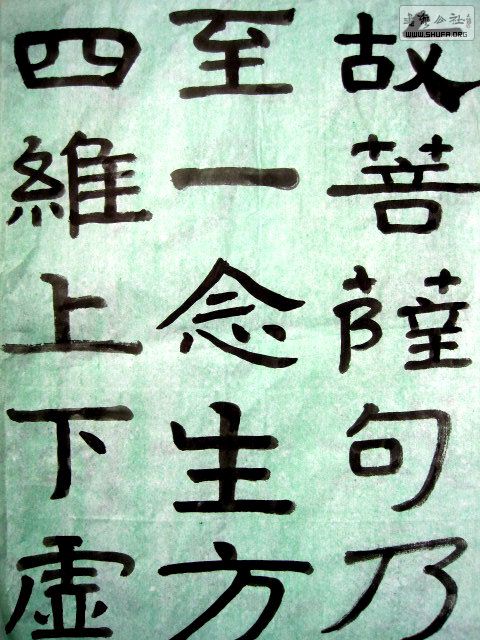 故菩薩句乃
至一念生方
四維上下虛
WWW.SHUFA.ORG